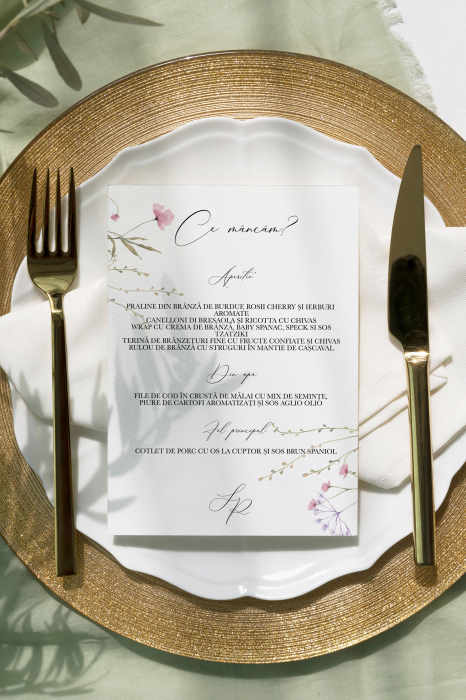 Ce mâncăm?
Aperitiv
PRALINE DIN BRÂNZĂ DE BURDUF, ROSII CHERRY ȘI IERBURI
AROMATE
CANELLONI DI BRESAOLA ȘI RICOTTA CU CHIVAS
WRAP CU CREMA DE BRÂNZĂ, BABY SPANAC, SPECK SI SOS
TZATZIKI
TERINĂ DE BRÂNZETURI FINE CU FRUCTE CONFIATE ȘI CHIVAS
RULOU DE BRÂNZĂ CU STRUGURI ÎN MANTIE DE CAȘCAVAL
Din apă
FILE DE COD ÎN CRUSTĂ DE MĂLAI CU MIX DE SEMINȚE,
PIURE DE CARTOFI AROMATIZAȚI ȘI SOS AGLIO OLIO
Fel principal
COTLET DE PORC CU OS LA CUPTOR ȘI SOS BRUN SPANIOL
SR